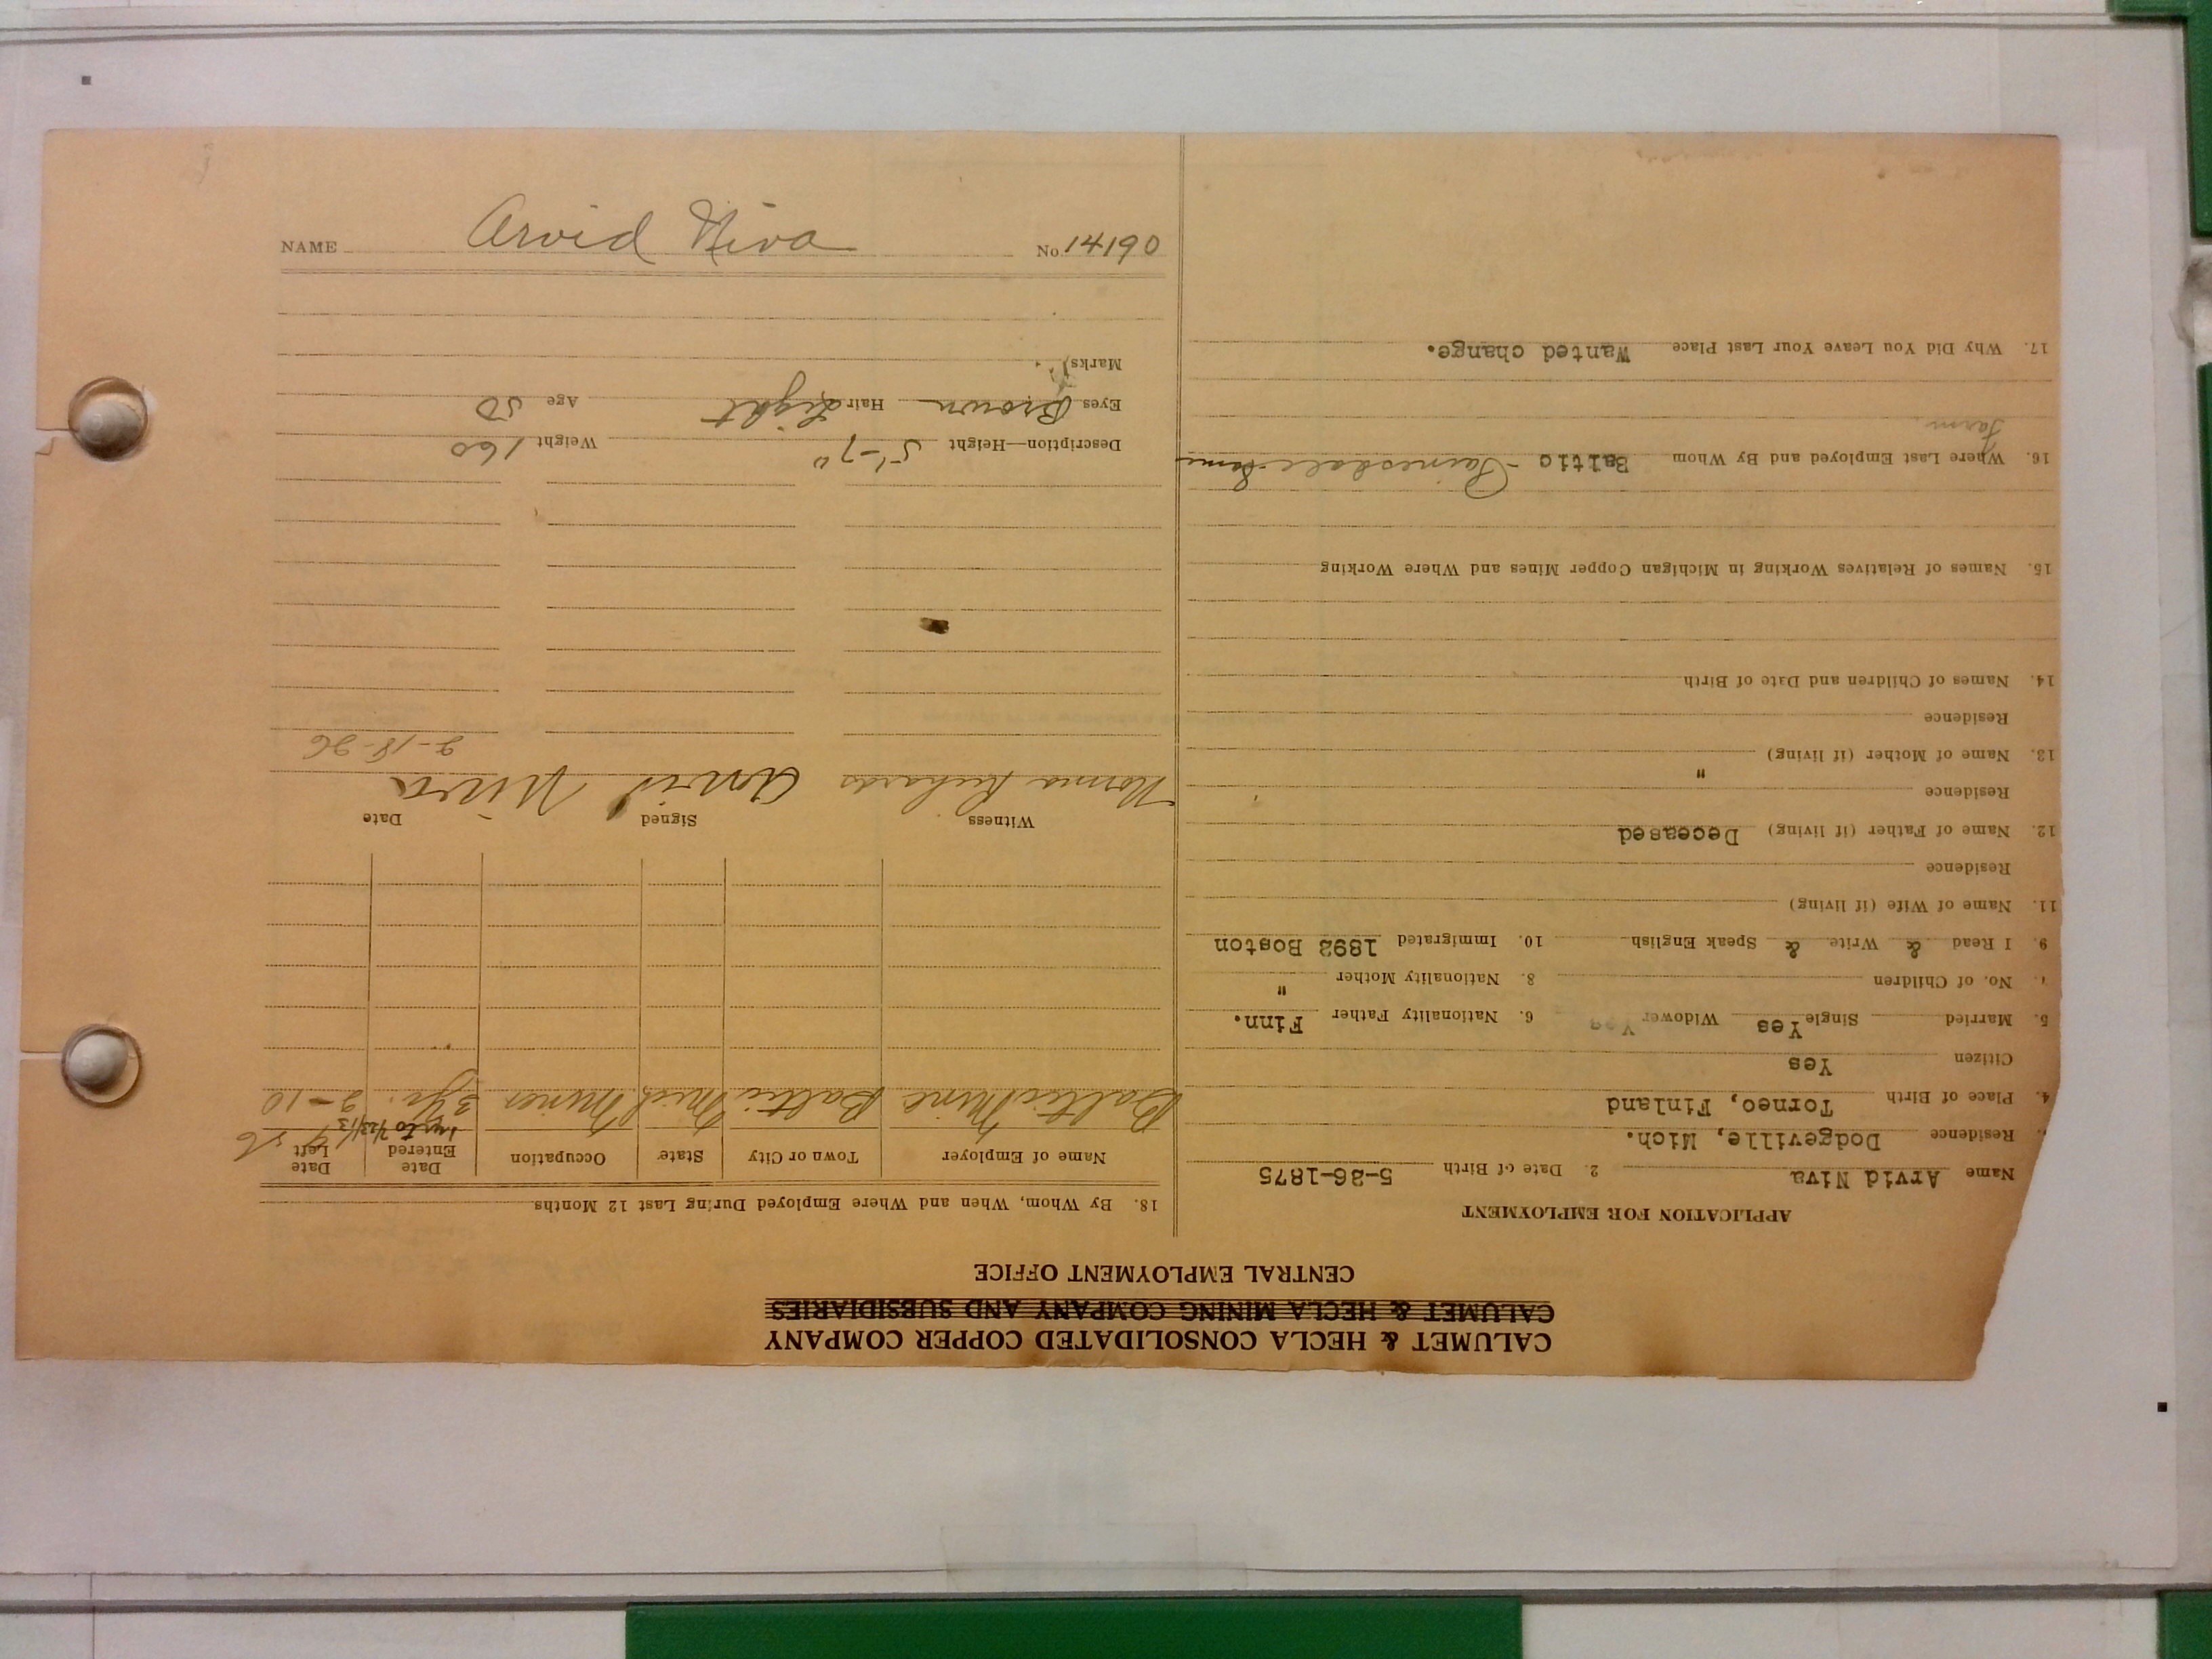 CALUMET & HECLA CONSOLIDATED COPPER COMPANY
CALUMET & HECLA MINING COMPANY AND SUBSIDIARIES
CENTRAL EMPLOYMENT OFFICE
APPLICATION FOR EMPLOYMENT
Name Arvid Niva 2. Date of Birth 5-26-1875
Residence Dodgeville, Mich.
4. Place of Birth Torneo, Finland
Citizen Yes
5. Married Single Yes Widower Yes 6. Nationality Father Finn.
No. of Children 8. Nationality Mother "
9. I Read & Write & Speak English 10. Immigrated 1892 Boston
11. Name of Wife (if living)
Residence
12. Name of Father (if living) Deceased
Residence
13. Name of Mother (if living) "
Residence
14. Names of Children and Date of Birth
15. Names of Relatives Working in Michigan Copper Mines and Where Working
16. Where Last Employed and By Whom Baltic - Painesdale Same
Farm
17. Why Did You Leave Your Last Place Wanted change.
18. By Whom, When and Where Employed During Last 12 Months
Name of Employer Town or City State Occupation Date Entered Date Left
Baltic Mine Baltic Mich Miner 3 yr. 2-10
to 7/23/13
Witness Signed Date
Norma Richards Arvid Niva 2-18-26
Description—Height 5'-7" Weight 160
Eyes Brown Hair Light Age 50
Marks
NAME Arvid Niva No. 14190